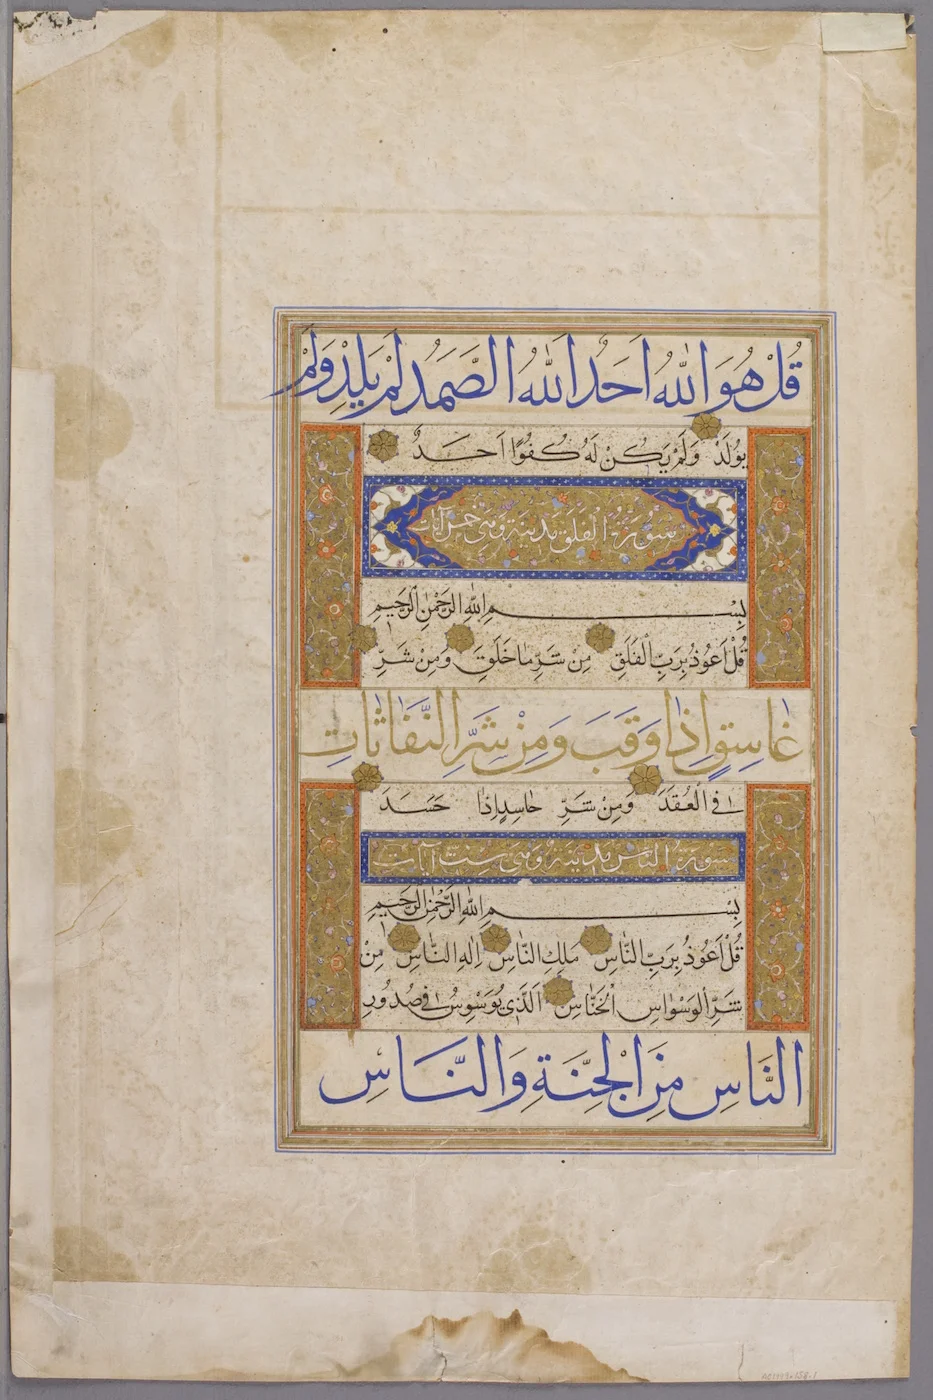 قُلْ هُوَ اللّٰهُ اَحَدٌ اَللّٰهُ الصَّمَدُ لَمْ يَلِدْ وَلَمْ
يُولَدْ وَلَمْ يَكُنْ لَهُ كُفُوًا اَحَدٌ
سُورَةُ الْفَلَقِ مَدِينَة وَهِيَ خمس آيات
بِسْمِ اللّٰهِ الرَّحْمٰنِ الرَّحِيمِ
قُلْ اَعُوذُ بِرَبِّ الْفَلَقِ مِنْ شَرِّ مَا خَلَقَ وَمِنْ شَرِّ
غَاسِقٍ اِذَا وَقَبَ وَمِنْ شَرِّ النَّفَّاثَاتِ
فِي الْعُقَدِ وَمِنْ شَرِّ حَاسِدٍ اِذَا حَسَدَ
سُورَةُ النَّاس مدينة وَهِيَ سِتّ آيات
بِسْمِ اللّٰهِ الرَّحْمٰنِ الرَّحِيمِ
قُلْ اَعُوذُ بِرَبِّ النَّاسِ مَلِكِ النَّاسِ اِلٰهِ النَّاسِ مِنْ
شَرِّ الْوَسْوَاسِ الْخَنَّاسِ اَلَّذِي يُوَسْوِسُ فِي صُدُورِ
النَّاسِ مِنَ الْجِنَّةِ وَالنَّاسِ